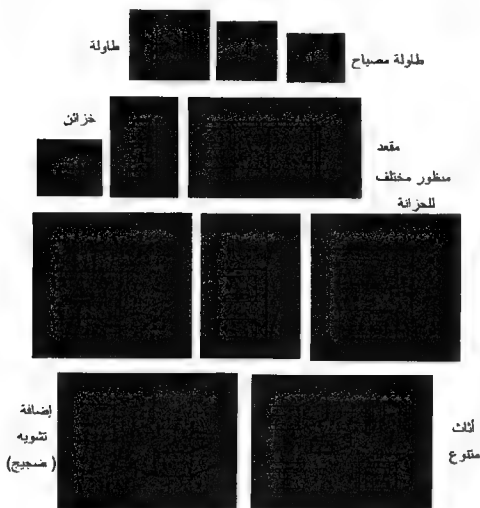 طاولة
طاولة مصباح
خزائن
مقعد
منظور مختلف
للخزانة
إضافة
تشويه
(ضجيج)
أثاث
متنوع